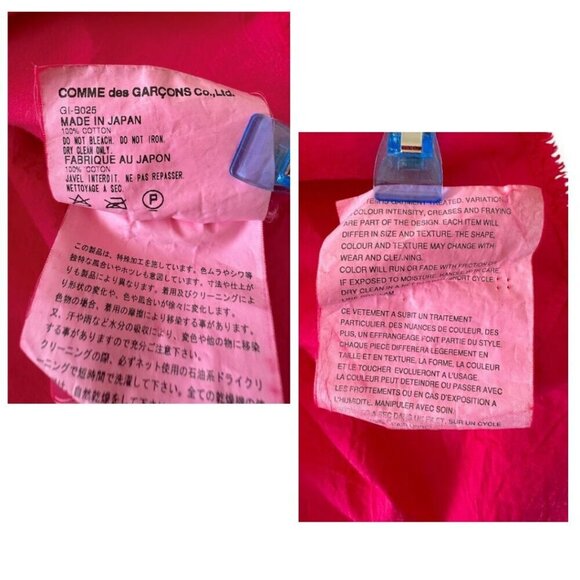 COMME des GARÇONS Co., Ltd.
GI-B025
MADE IN JAPAN
100% COTTON
DO NOT BLEACH. DO NOT IRON.
DRY CLEAN ONLY.
FABRIQUE AU JAPON
100% COTON
JAVEL INTERDIT. NE PAS REPASSER.
NETTOYAGE A SEC.
P
この製品は、特殊加工を施しています。色ムラやシワ等
独特な風合いやホツレも意図しています。寸法や仕上が
りも製品により異なります。着用及びクリーニングによ
り形状の変化や、色や風合いが徐々に変化します。
色物の場合、着用の摩擦により移染する事があります。
又、汗や雨など水分の吸収により、変色や他の物に移染
する事がありますので充分ご注意下さい。
クリーニングの際、必ずネット使用の石油系ドライクリ
ーニングで短時間で洗濯して下さい。全ての乾燥機の使
自然乾燥をして下さい
IS GARMENT TREATED. VARIATION
COLOUR INTENSITY, CREASES AND FRAYING
ARE PART OF THE DESIGN. EACH ITEM WILL
DIFFER IN SIZE AND TEXTURE. THE SHAPE,
COLOUR AND TEXTURE MAY CHANGE WITH
WEAR AND CLEANING.
COLOR WILL RUN OR FADE WITH FRICTION OR
IF EXPOSED TO MOISTURE. HANDLE WITH CARE.
DRY CLEAN IN A SHORT CYCLE
CE VETEMENT A SUBIT UN TRAITEMENT
PARTICULIER. DES NUANCES DE COULEUR, DES
PLIS, UN EFFRANGEAGE FONT PARTIE DU STYLE.
CHAQUE PIECE DIFFERERA LEGEREMENT EN
TAILLE ET EN TEXTURE, LA FORME, LA COULEUR
ET LE TOUCHER EVOLUERONT A L'USAGE.
LA COULEUR PEUT DETEINDRE OU PASSER AVEC
LES FROTTEMENTS OU EN CAS D'EXPOSITION A
L'HUMIDITE. MANIPULER AVEC SOIN.
A SEC DANS UN FILET, SUR UN CYCLE